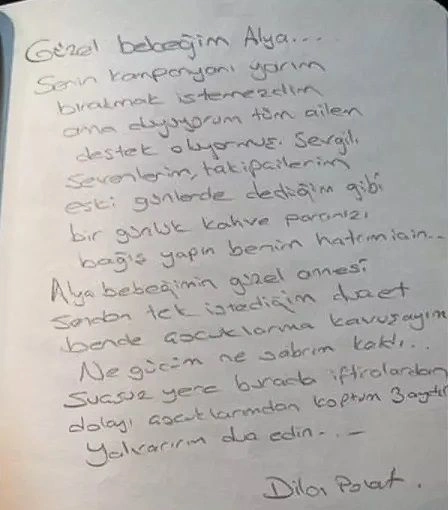 Güzel bebeğim Alya....
Senin kampanyanı yarım
bırakmak istemezdim
ama duyuyorum tüm ailen
destek oluyormuş. Sevgili
sevenlerim, takipçilerim
eski günlerde dediğim gibi
bir günlük kahve paranızı
bağış yapın benim hatrım için...
Alya bebeğimin güzel annesi
Senden tek istediğim dua et
bende çocuklarıma kavuşayım
Ne gücüm ne sabrım kaldı...
Suçsuz yere burada iftiralardan
dolayı çocuklarımdan koptum 3 aydır
Yalvarırım dua edin...
Dilan Polat.